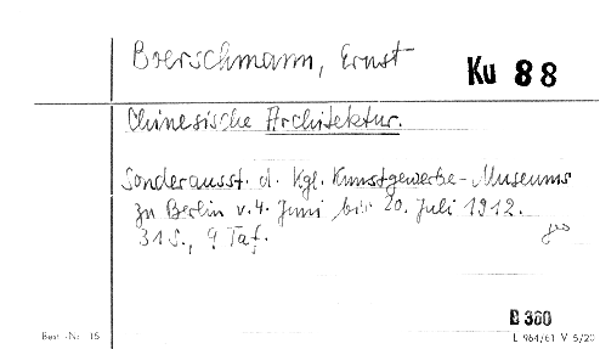 Boerschmann, Ernst
Ku 88
Chinesische Architektur.
Sonderausst. d. Kgl. Kunstgewerbe-Museums
zu Berlin v. 4. Juni bis 20. Juli 1912.
31 S., 9 Taf.
B 360
Best.-Nr. 15
L 964/61 V 5/20